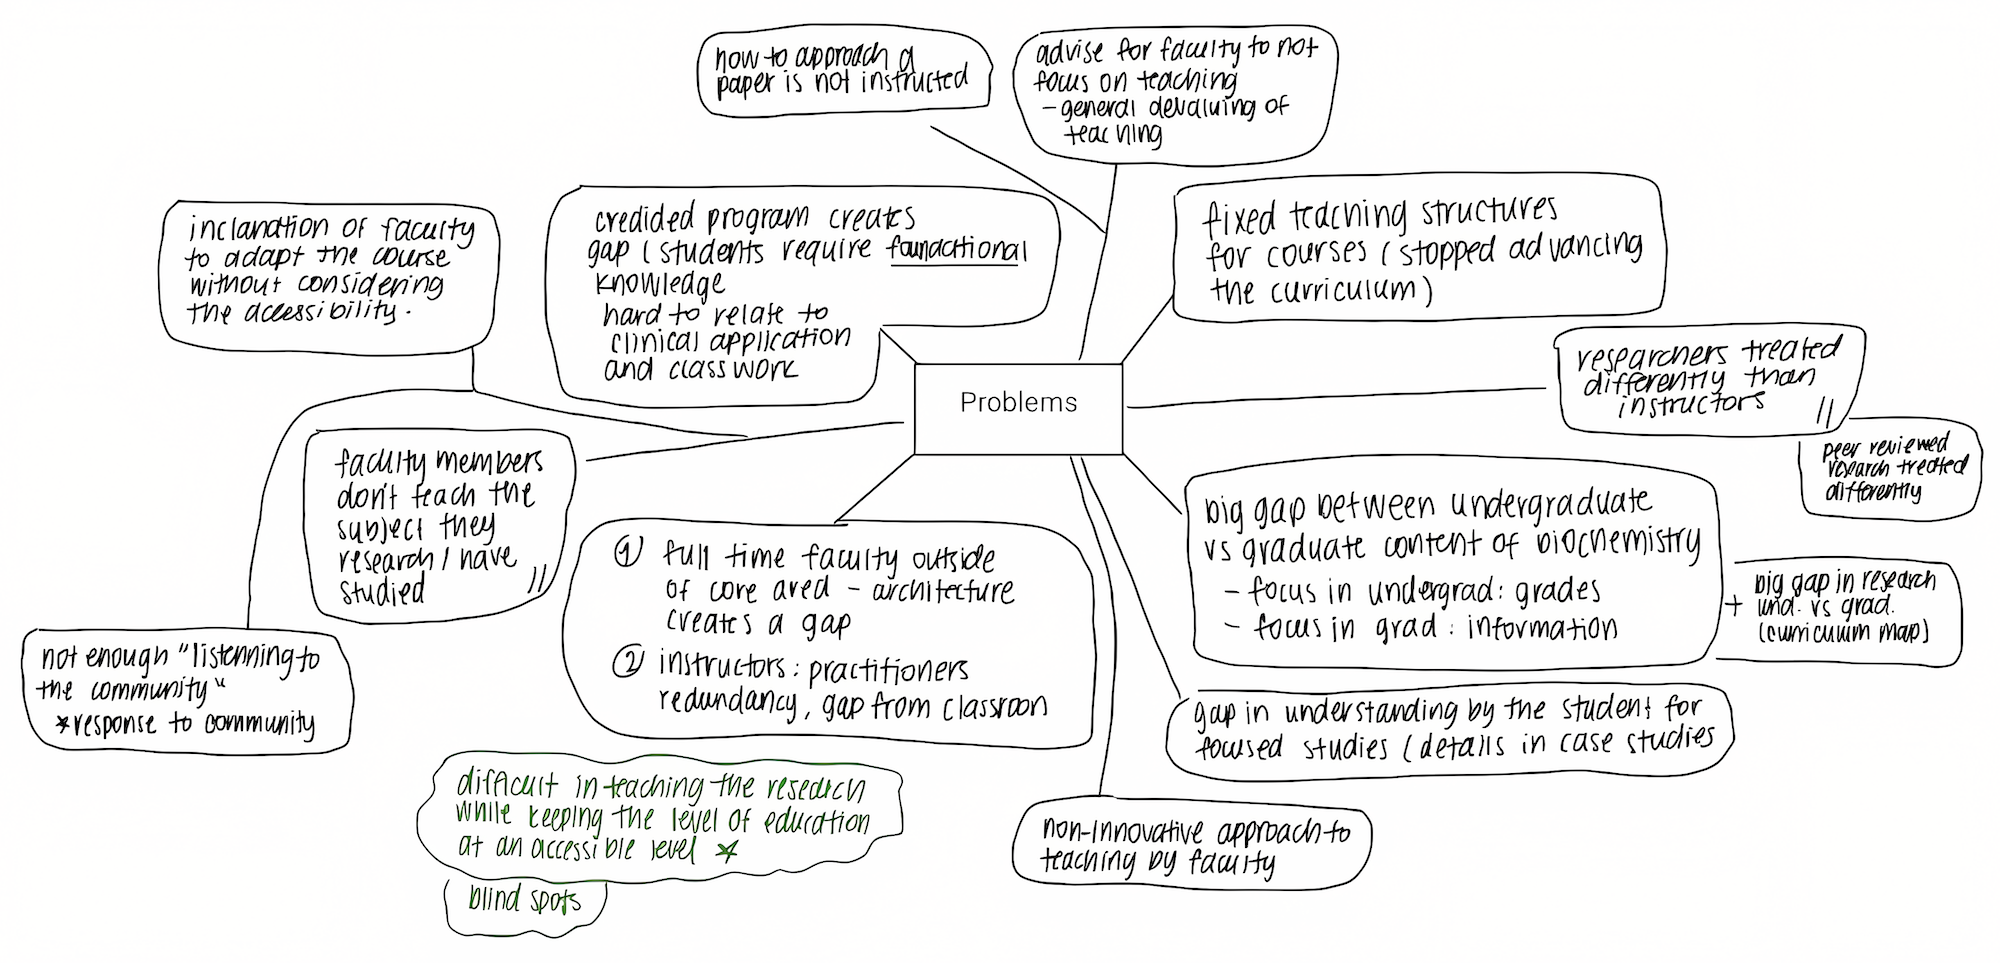 how to approach a
paper is not instructed
advise for faculty to not
focus on teaching
- general devaluing of
teaching
inclanation of faculty
to adapt the course
without considering
the accessibility.
credided program creates
gap ( students require foundational
knowledge
hard to relate to
clinical application
and classwork
fixed teaching structures
for courses ( stopped advancing
the curriculum )
researchers treated
differently than
instructors //
peer reviewed
research treated
differently
Problems
faculty members
don't teach the
subject they
research / have
studied //
① full time faculty outside
of core area - architecture
creates a gap
② instructors : practitioners
redundancy, gap from classroon
big gap between undergraduate
vs graduate content of biochemistry
- focus in undergrad: grades
- focus in grad : information
+ big gap in research
und. vs grad.
(curriculum map)
not enough "listenning to
the community"
* response to community
gap in understanding by the student for
focused studies ( details in case studies
difficult in teaching the research
while keeping the level of education
at an accessible level ☆
blind spots
non-innovative approach to
teaching by faculty